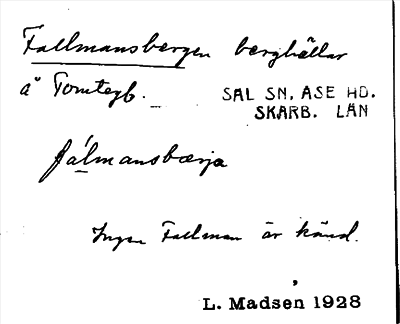 Fallmansbergen berghällar
å Tomtegb.
SAL SN, ÅSE HD.
SKARB. LÄN
fálmansbærja
Ingen Fallman är känd.
L. Madsen 1928